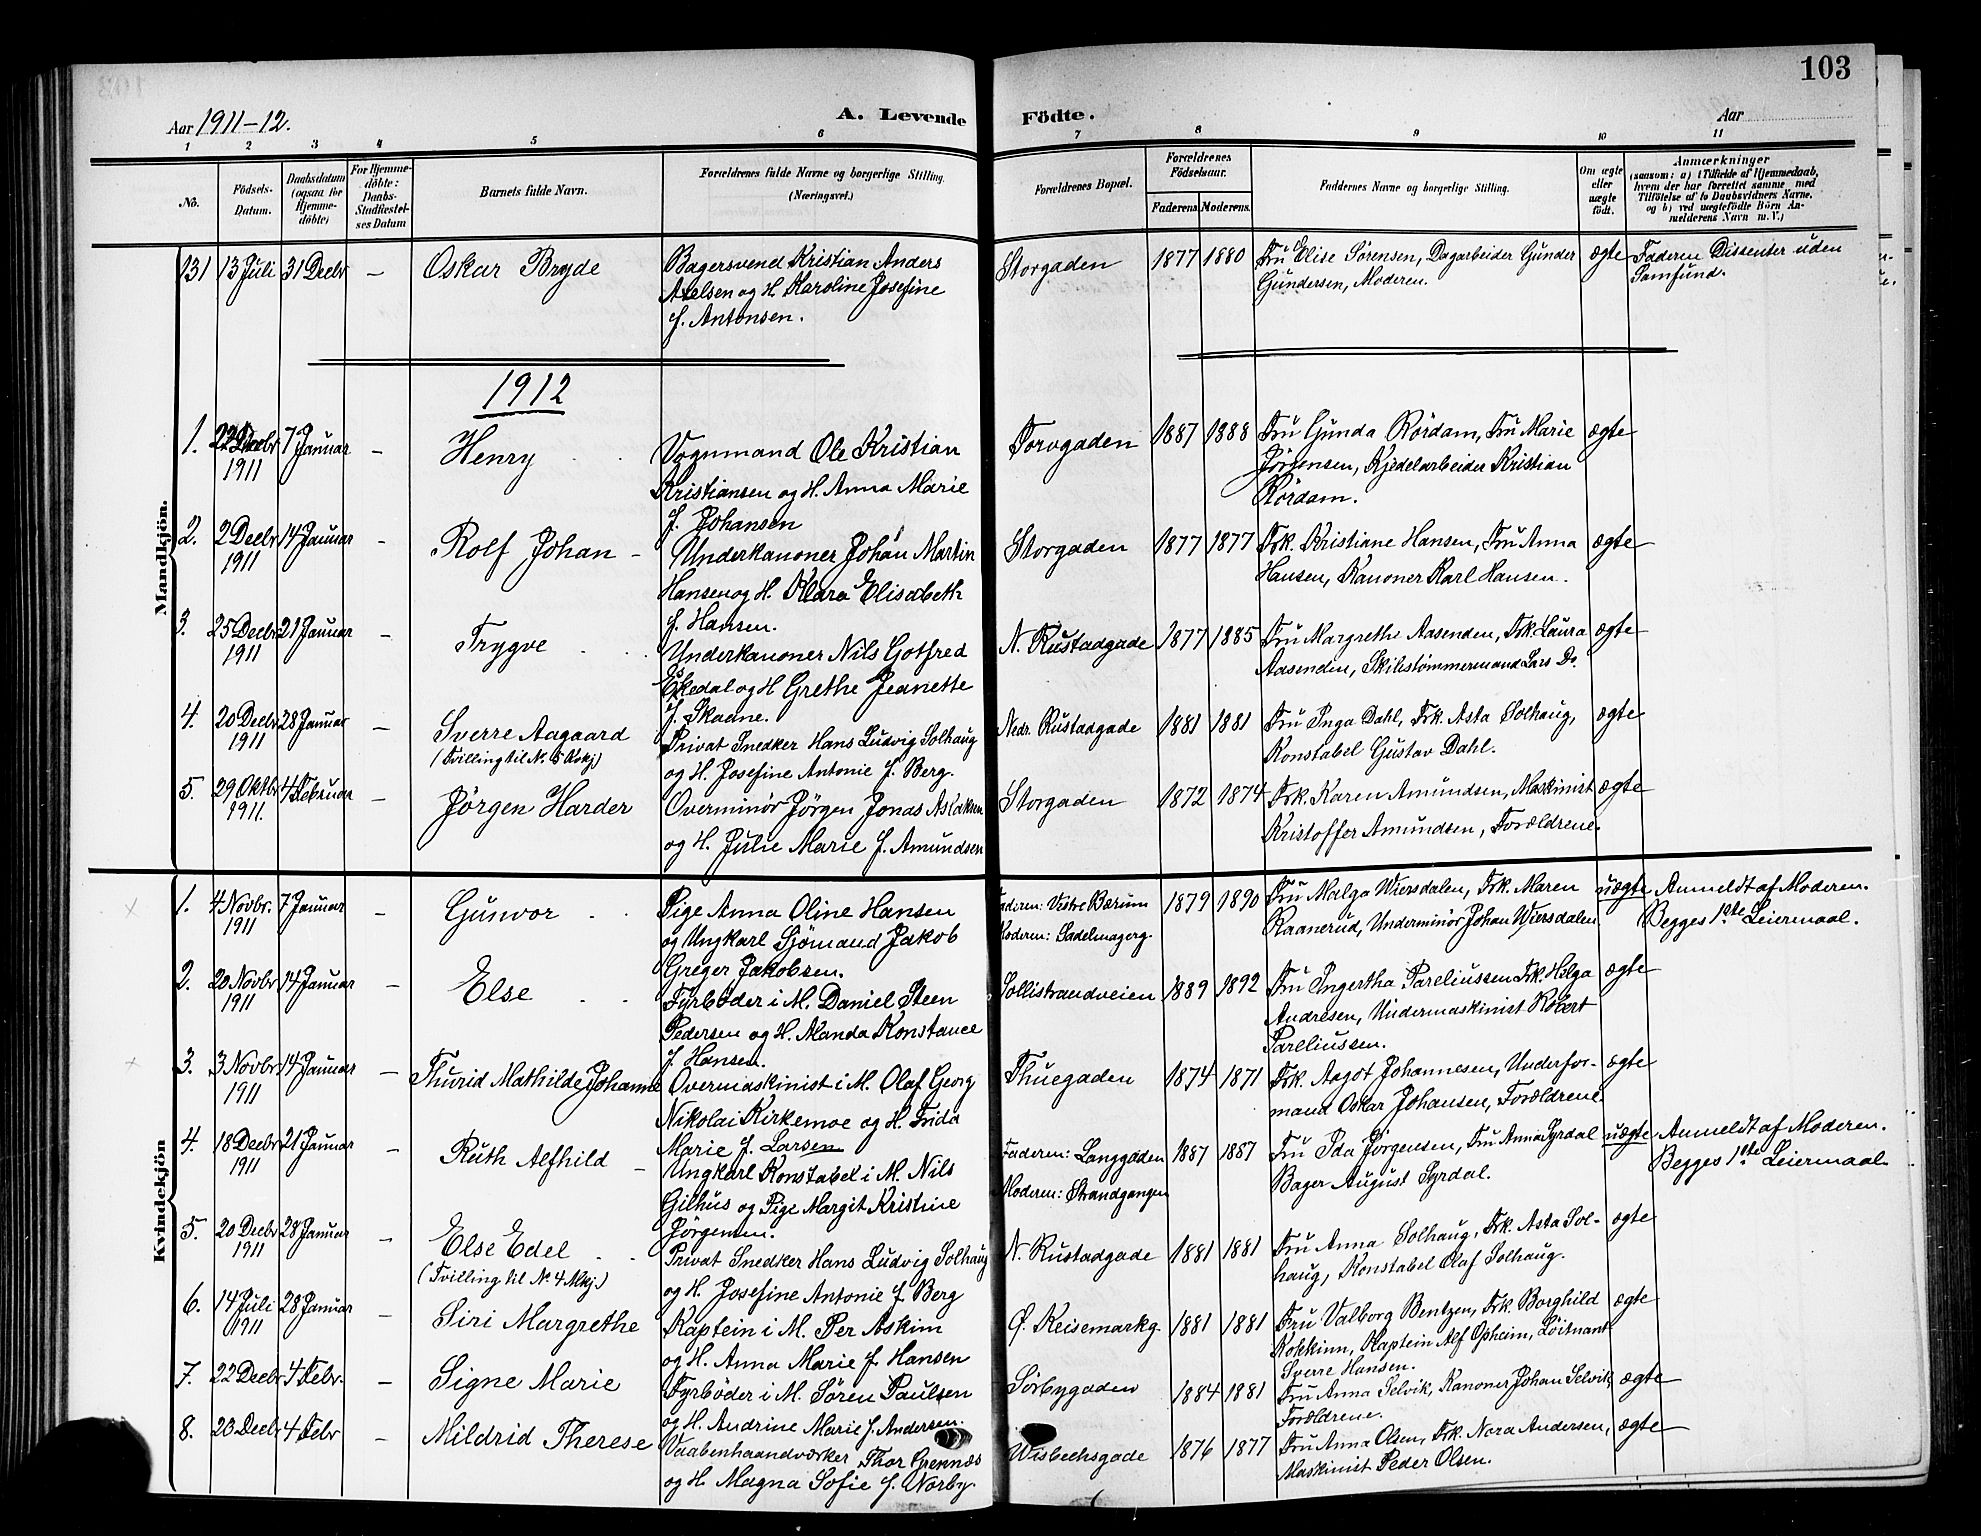 103
Aar 1911-12.
A. Levende Födte.
Aar
1 2 3 4 5 6 7 8 9 10 11
No.
Födsels-Datum.
Daabsdatum (ogsaa for Hjemme-döbte)
For Hjemme-döbte: Daabs-Stadfæstel-ses Datum
Barnets fulde Navn.
Forældrenes fulde Navne og borgerlige Stilling. (Næringsvei.)
Forældrenes Bopæl.
Forældrenes Födselsaar.
Faderens. Moderens.
Faddernes Navne og borgerlige Stilling.
Om ægte eller uægte födt.
Anmærkninger
(saasom: a) i Tilfælde af Hjemmedaab, hvem der har forrettet samme med Tilföielse af to Daabsvidners Navne, og b) ved uægtefödte Börn An-melderens Navn m. V.)
131 13 Juli 31 Decbr – Oskar Bryde
Bagersvend Kristian Anders
Axelsen og H. Karoline Josefine
f. Antonsen.
Storgaden 1877 1880
Fru Elise Sörensen, Dagarbeider Gunder
Gundersen, Moderen.
ægte
Faderen Dissenter uden
Samfund.
1912
Mandkjön.
1. 22 Decbr 1911 7 Januar – Henry
Vognmand Ole Kristian
Kristiansen og H. Anna Marie
f. Johansen
Torvgaden 1887 1888
Fru Gunda Rördam, Fru Marie
Jörgensen, Kjedelarbeider Kristian
Rördam.
ægte
2. 2 Decbr 1911 14 Januar – Rolf Johan –
Underkanoner Johan Martin
Hansen og H. Klara Elisabeth
f. Hansen.
Storgaden 1877 1877
Frk. Kristiane Hansen, Fru Anna
Hansen, Kanoner Karl Hansen.
ægte
3. 25 Decbr 1911 21 Januar – Trygve
Underkanoner Nils Gotfred
Ekedal og H Grethe Jeanette
f. Skaane.
N. Rustadgade 1877 1885
Fru Margrethe Aasenden, Frk. Laura
Aasenden, Skibstömmermand Lars Do.
ægte
4. 20 Decbr 1911 28 Januar – Sverre Aagaard
(Tvilling til N. 5 Kvkj)
Privat Snedker Hans Ludvig Solhaug
og H. Josefine Antonie f. Berg.
Nedr. Rustadgade 1881 1881
Fru Inga Dahl, Frk. Asta Solhaug,
Konstabel Gustav Dahl.
ægte
5. 29 Oktbr 1911. 4 Februar – Jörgen Harder
Overminör Jörgen Jonas Aslaksen
og H. Julie Marie f. Amundsen
Storgaden 1872 1874
Frk. Karen Amundsen, Maskinist
Kristoffer Amundsen, Forældrene.
ægte
Kvindekjön
1. 4 Novbr. 1911 7 Januar – Gunvor
Pige Anna Oline Hansen
og Ungkarl Sjömand Jakob
Greger Jakobsen.
Faderen: Vestre Bærum
Moderen: Sadelmagerg.
1879 1890
Fru Malga Wiersdalen, Frk. Maren
Raanerud, Underminör Johan Wiersdalen
uægte
Anmeldt af Moderen.
Begges 1ste Leiermaal.
2. 20 Novbr 1911 14 Januar – Else
Fyrböder i M. Daniel Steen
Pedersen og H. Manda Konstance
f. Hansen.
Sollistrandveien 1889 1892
Fru Ingertha Pareliussen Frk. Helga
Andresen, Undermaskinist Robert
Pareliussen.
ægte
3. 3 Novbr. 1911 14 Januar – Thurid Mathilde Johanne
Overmaskinist i M. Olaf Georg
Nikolai Kirkemoe og H. Frida
Marie f. Larsen
Thuegaden 1874 1871
Frk. Aagot Johannesen, Underfor-
mand Oskar Johansen, Forældrene.
ægte
4. 18 Decbr 1911 21 Januar – Ruth Alfhild –
Ungkarl Konstabel i M. Nils
Gilhus og Pige Margit Kristine
Jörgensen.
Faderen: Langgaden
Moderen: Strandgangen
1887 1887
Fru Ida Jörgensen, Fru Anna Syrdal
Bager August Syrdal.
uægte
Anmeldt af Moderen.
Begges 1ste Leiermaal
5. 20 Decbr 1911 28 Januar – Else Edel
(Tvilling til No 4 Mkj.)
Privat Snedker Hans Ludvig Solhaug
og H. Josefine Antonie f. Berg
N. Rustadgade 1881 1881
Fru Anna Solhaug, Frk. Asta Sol-
haug, Konstabel Olaf Solhaug.
ægte
6. 14 Juli 1911 28 Januar – Siri Margrethe
Kaptein i M. Per Askim
og H. Anna Marie f. Hansen
Ø. Keisemarkg. 1881 1881
Fru Valborg Bentzen, Frk. Borghild
Kokkinn, Kaptein Alf Opheim, Löitnant
Sverre Hansen.
ægte
7. 22 Decbr 4 Febr. – Signe Marie
Fyrböder i M. Sören Paulsen
og H. Andrine Marie f. Andersen.
Sörbygaden 1884 1881
Fru Anna Selvik, Kanoner Johan Selvik,
Forældrene.
ægte
8. 23 Decbr 4 Febr – Mildrid Therese
Vaabenhaandværker Thor Grennæs
og H. Magna Sofie f. Norby.
Wisbechsgade 1876 1877
Fru Anna Olsen, Frk. Nora Andersen,
Maskinist Peder Olsen.
ægte